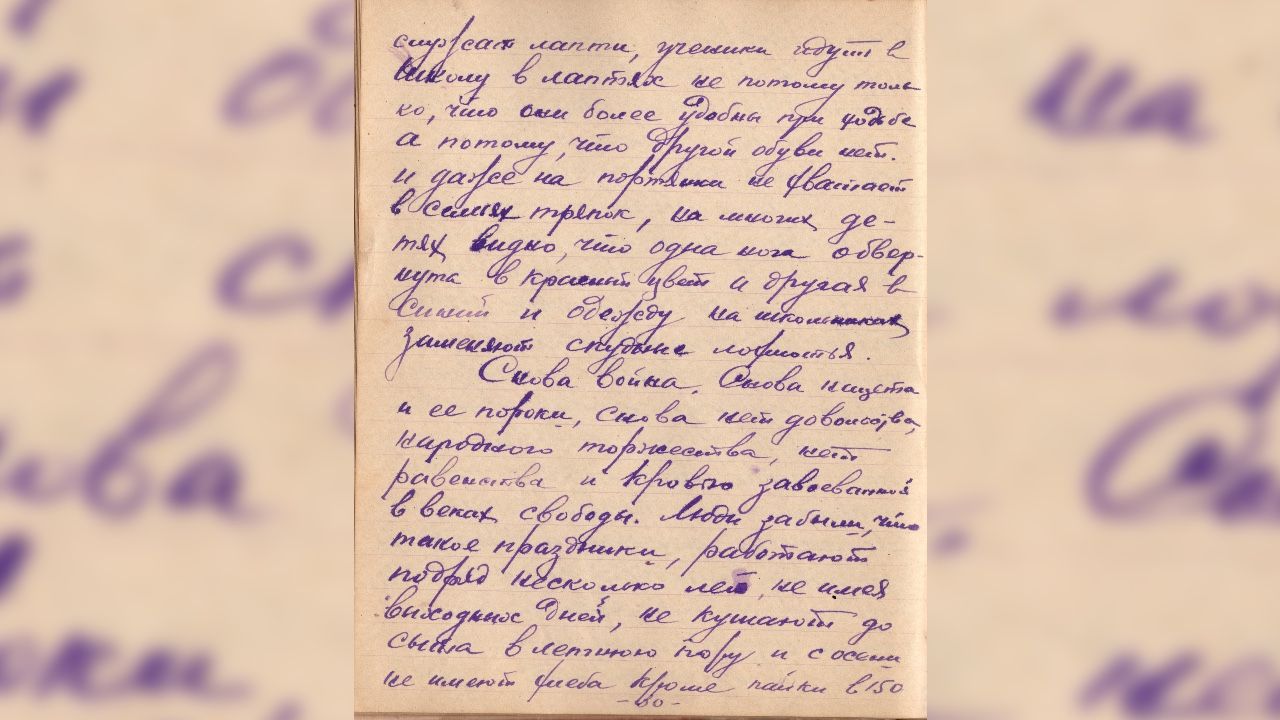 служат лапти, ученики идут в
школу в лаптях не потому толь
ко, что они более удобны при ходьбе
а потому, что другой обуви нет.
и даже на портянки не хватает
в семьях тряпок, на многих де-
тях видно, что одна нога обвер-
нута в красный цвет и другая в
синий и одежду на школьниках
заменяют скудные лохмотья.
Снова война. Снова нищета
и ее пороки, снова нет довольства,
народного торжества, нет
равенства и кровью завоеванной
в веках свободы. Люди забыли, что
такое праздники, работают
подряд несколько лет, не имея
выходных дней, не кушают до
сыта в летнюю пору и с осени
не имеют хлеба кроме пайки в 150